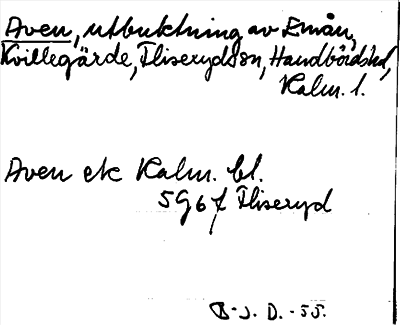 Aven, utbuktning av Emån,
Kvillegärde, Fliseryds sn, Handbörds hd,
Kalm. l.
Aven ek Kalm. bl.
5 G 6 f Fliseryd
B. J. D. -55.